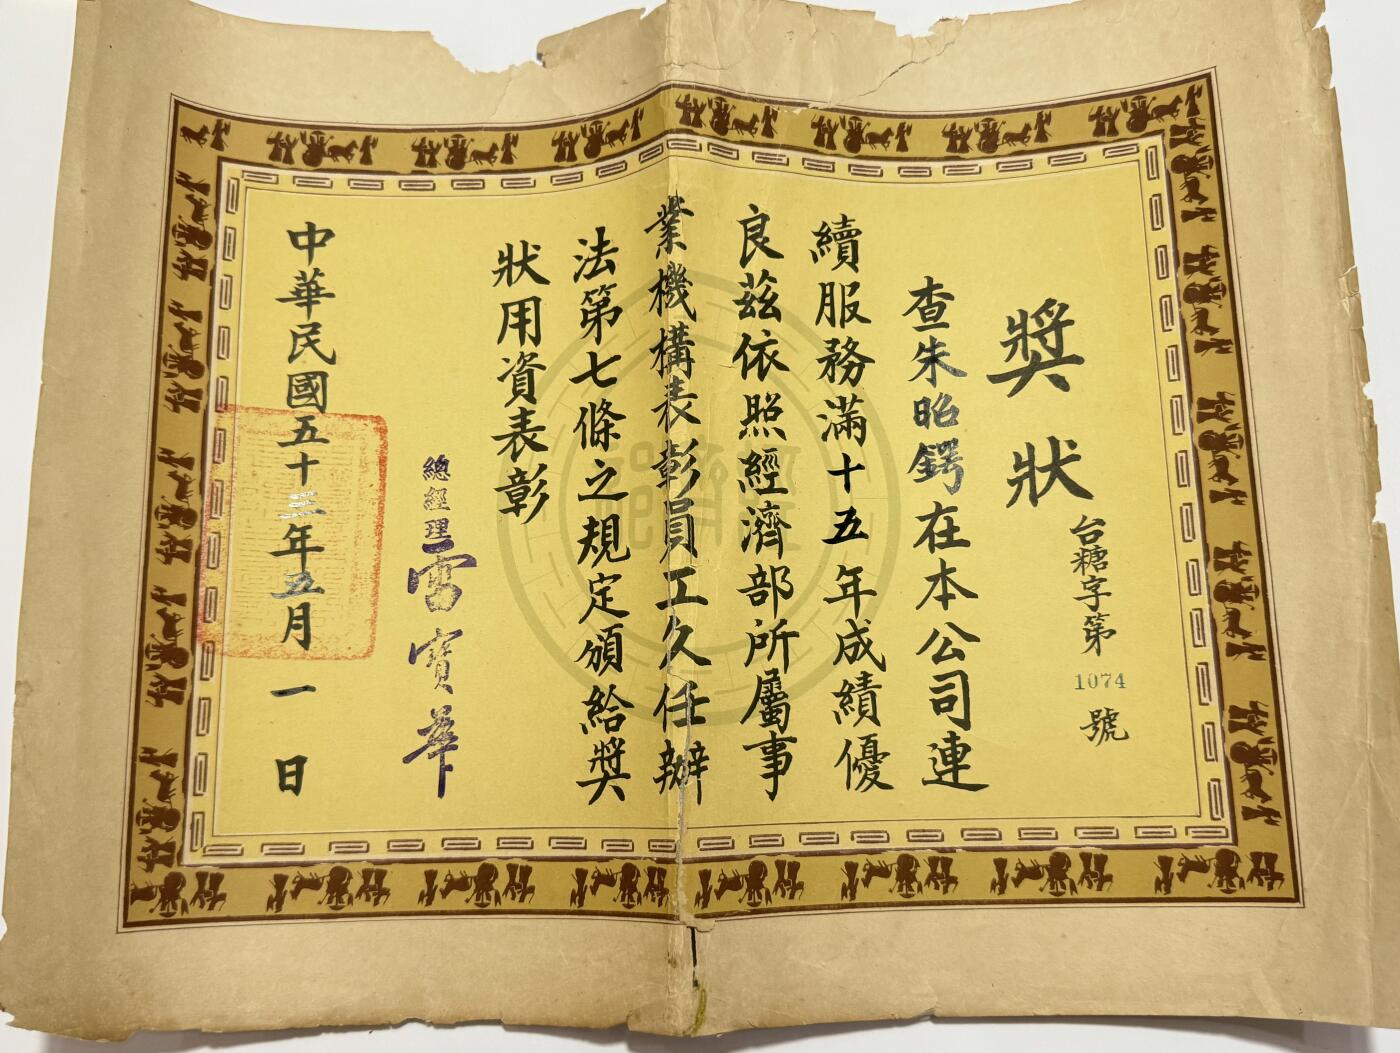 獎狀
台糖字第1074號
查朱昭鍔在本公司連
續服務滿十五年成績優
良茲依照經濟部所屬事
業機構表彰員工久任辦
法第七條之規定頒給獎
狀用資表彰
總經理 雷寶華
中華民國五十三年五月一日